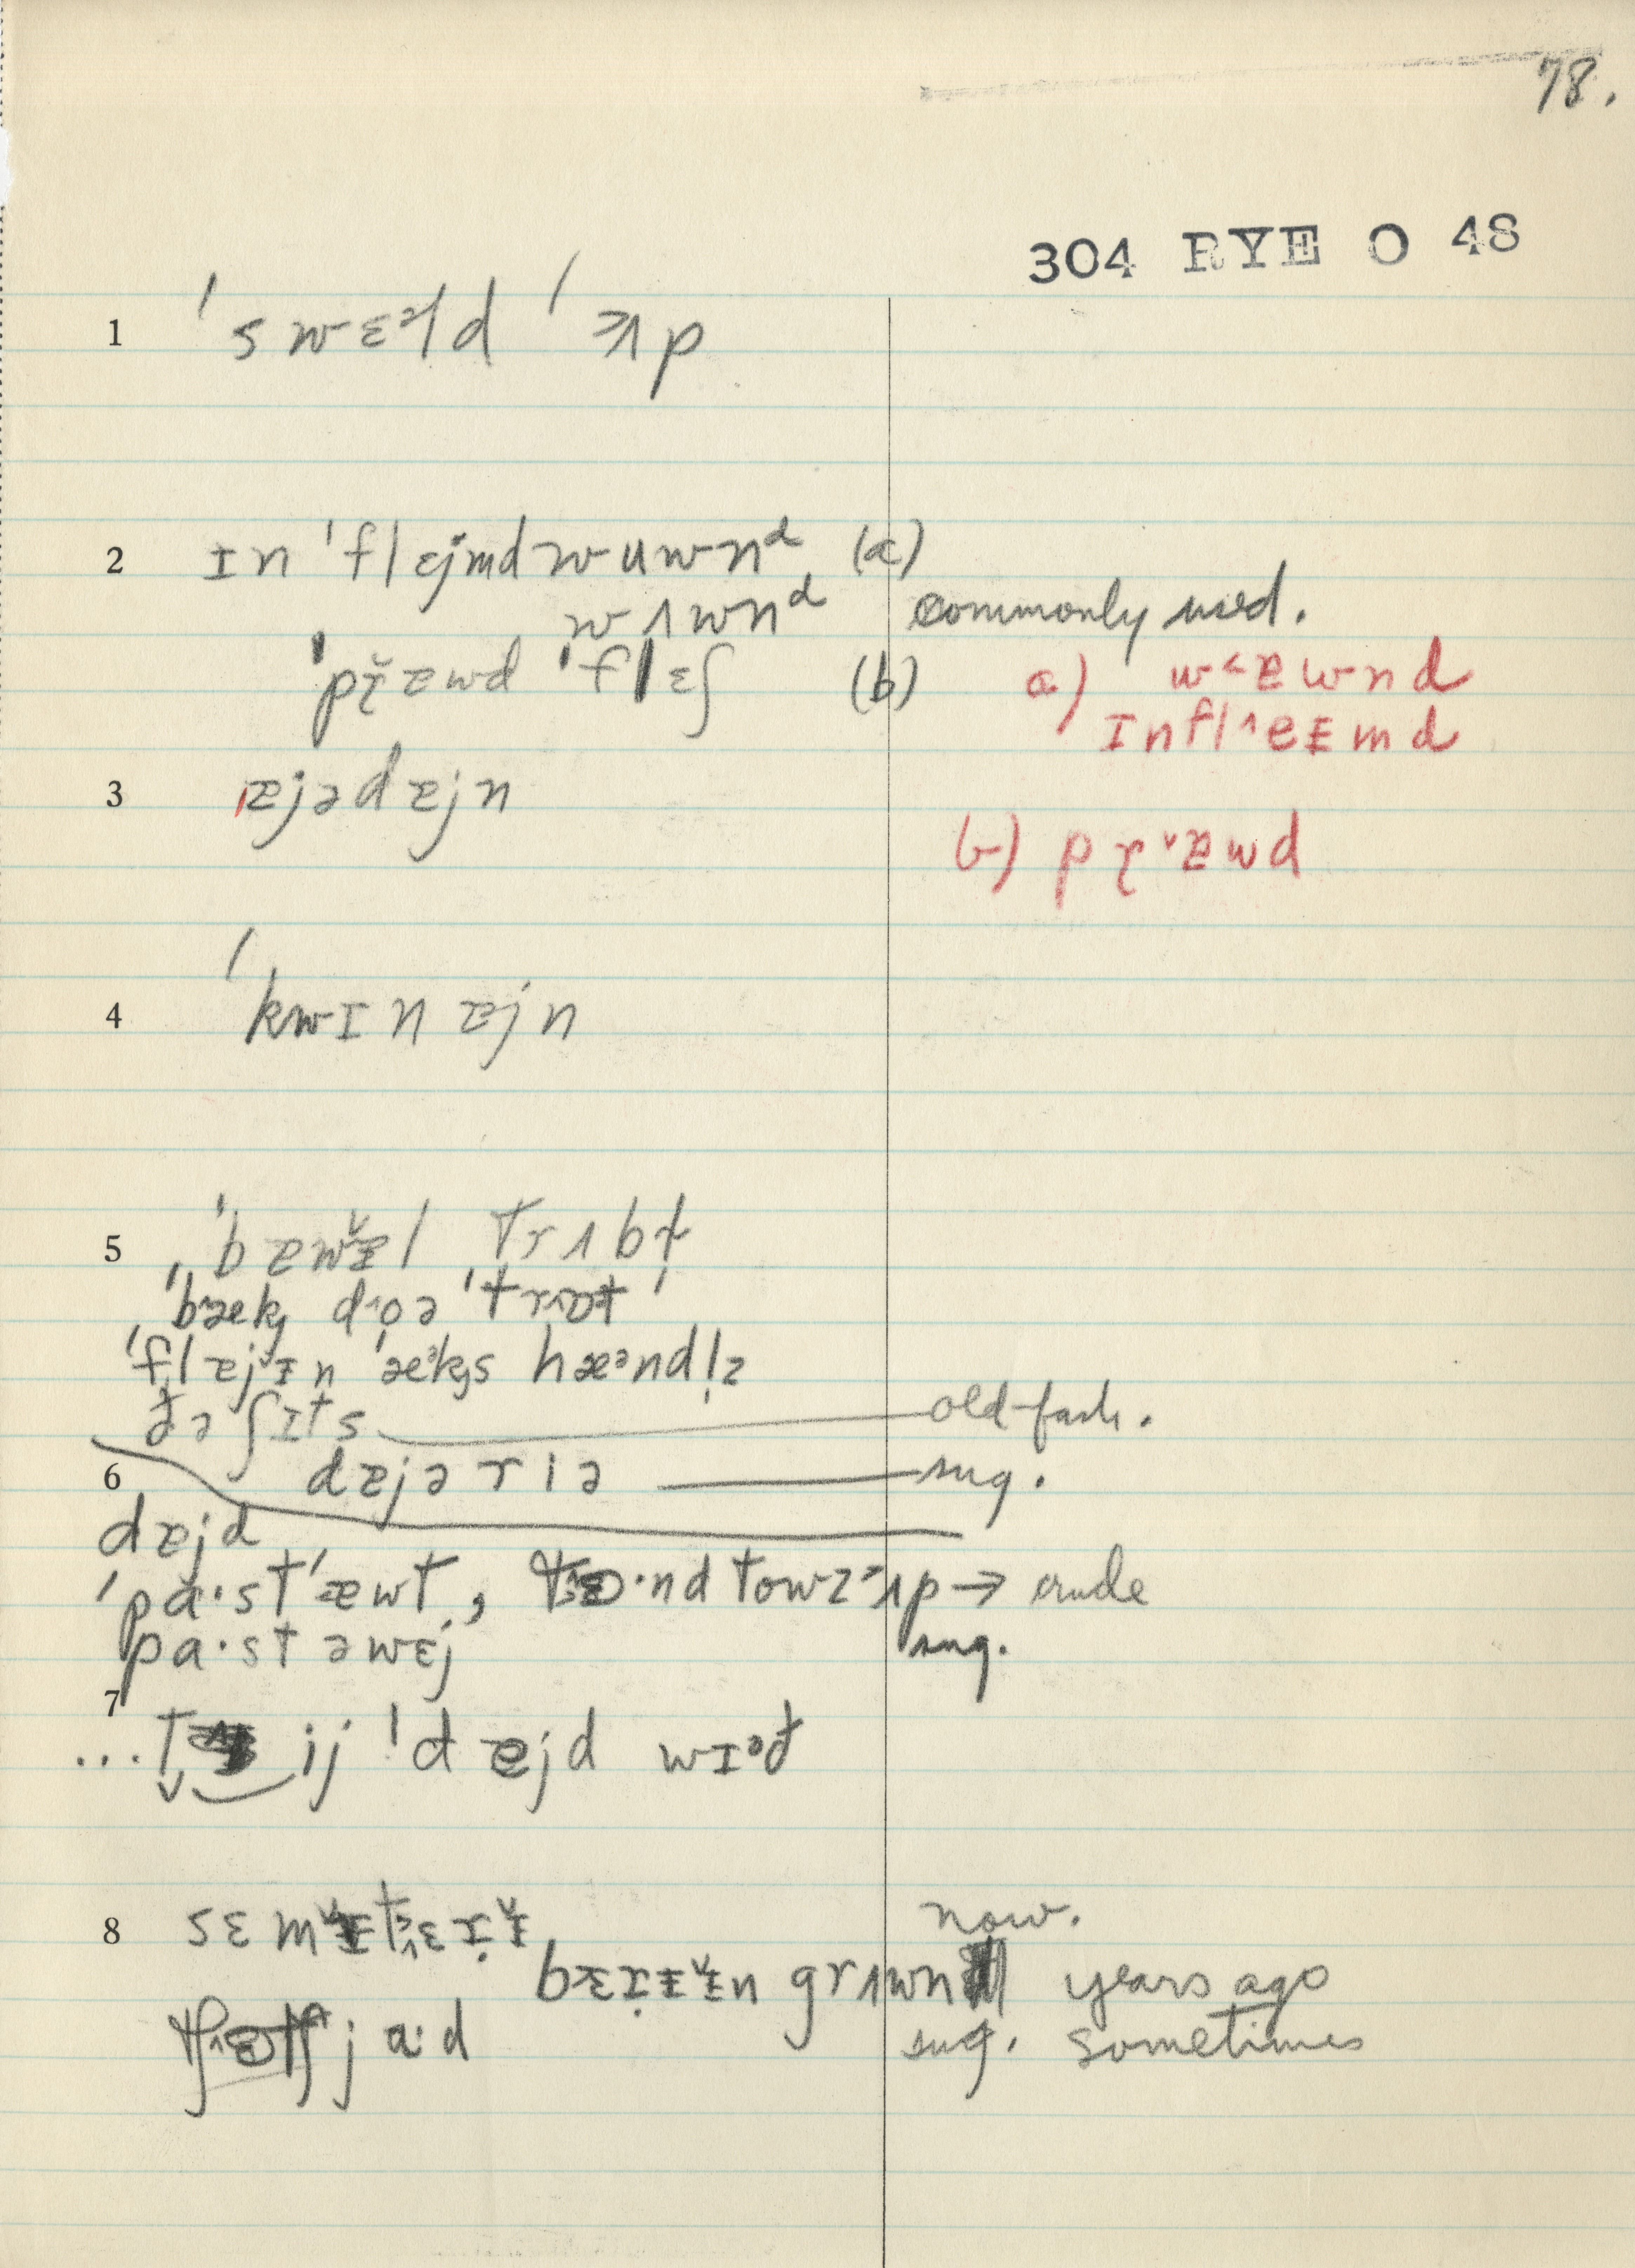 78.
304 RYE O 48
1 ˈswɛəld ˈʌp
2 ɪn ˈflɛjmd wuwnᵈ (a)
wʌwnᵈ commonly used.
ˈpɽɐwd ˈflɛʃ (b) a) w˂ɐwnd
ɪnfl^eɪmd
3 ˈɐjədɐjn
b) pɽˇɐwd
4 ˈkwɪnɐjn
5 ˈbɐwɪ̵l trʌbl̩
ˈbæk dʌoə ˈtrɒt
ˈflɐjɪn ˈæᵊks hæᵊndl̩z
ðə ʃɪts old-fash.
6 dɐjəriə sug.
dɐjd
ˈpa·st ˈæwt, tɜ·nd towz ʌp → crude
pa·st əwɛj sug.
7
... ij ˈdɐjd wɪᵊð
8 sɛmɪ̵tɛrɪ̵ now.
bɛrɪ̵ɪ̵n grʌwn years ago
jaːd sug. sometimes